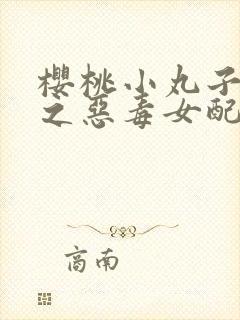 櫻桃小丸子
之惡毒女配
商南